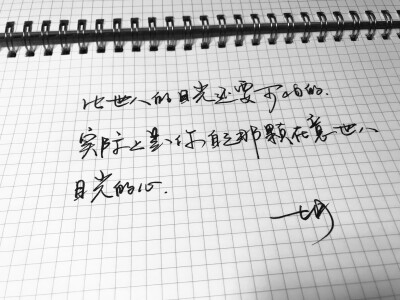 比世人的目光还要可怕的.
实际上是你自己那颗在意世人
目光的心.